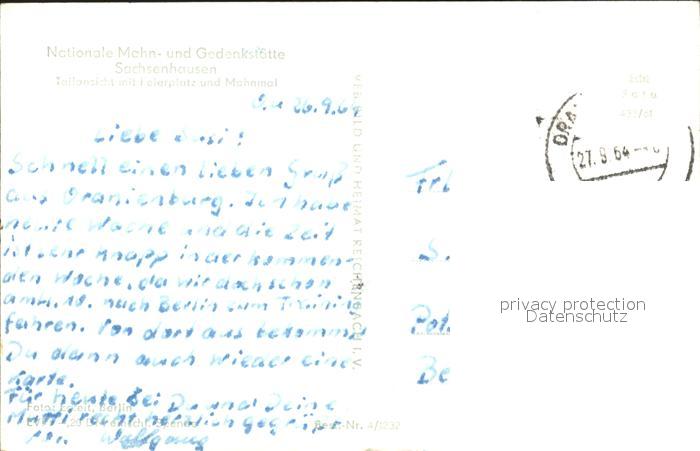 Nationale Mahn- und Gedenkstätte
Sachsenhausen
Teilansicht mit Feierplatz und Mahnmal
Echt
Foto
VERLAG BILD UND HEIMAT REICHENBACH I. V.
ORA
27.9.64
26.9.64
Liebe Susi!
Schnell einen lieben Gruß
aus Oranienburg. Ich habe
heute Wache und die Zeit
ist sehr knapp in der kommen-
den Woche, da wir doch schon
am 1.10. nach Berlin zum Training
fahren. Von dort aus bekommst
Du dann auch wieder eine
Karte.
Für heute sei Du und Deine
Mutti recht herzlich gegrüßt
Wolfgang
Frl
S.
Pot.
Be
Foto: Berlin
Best.-Nr. 4/1232
privacy protection
Datenschutz